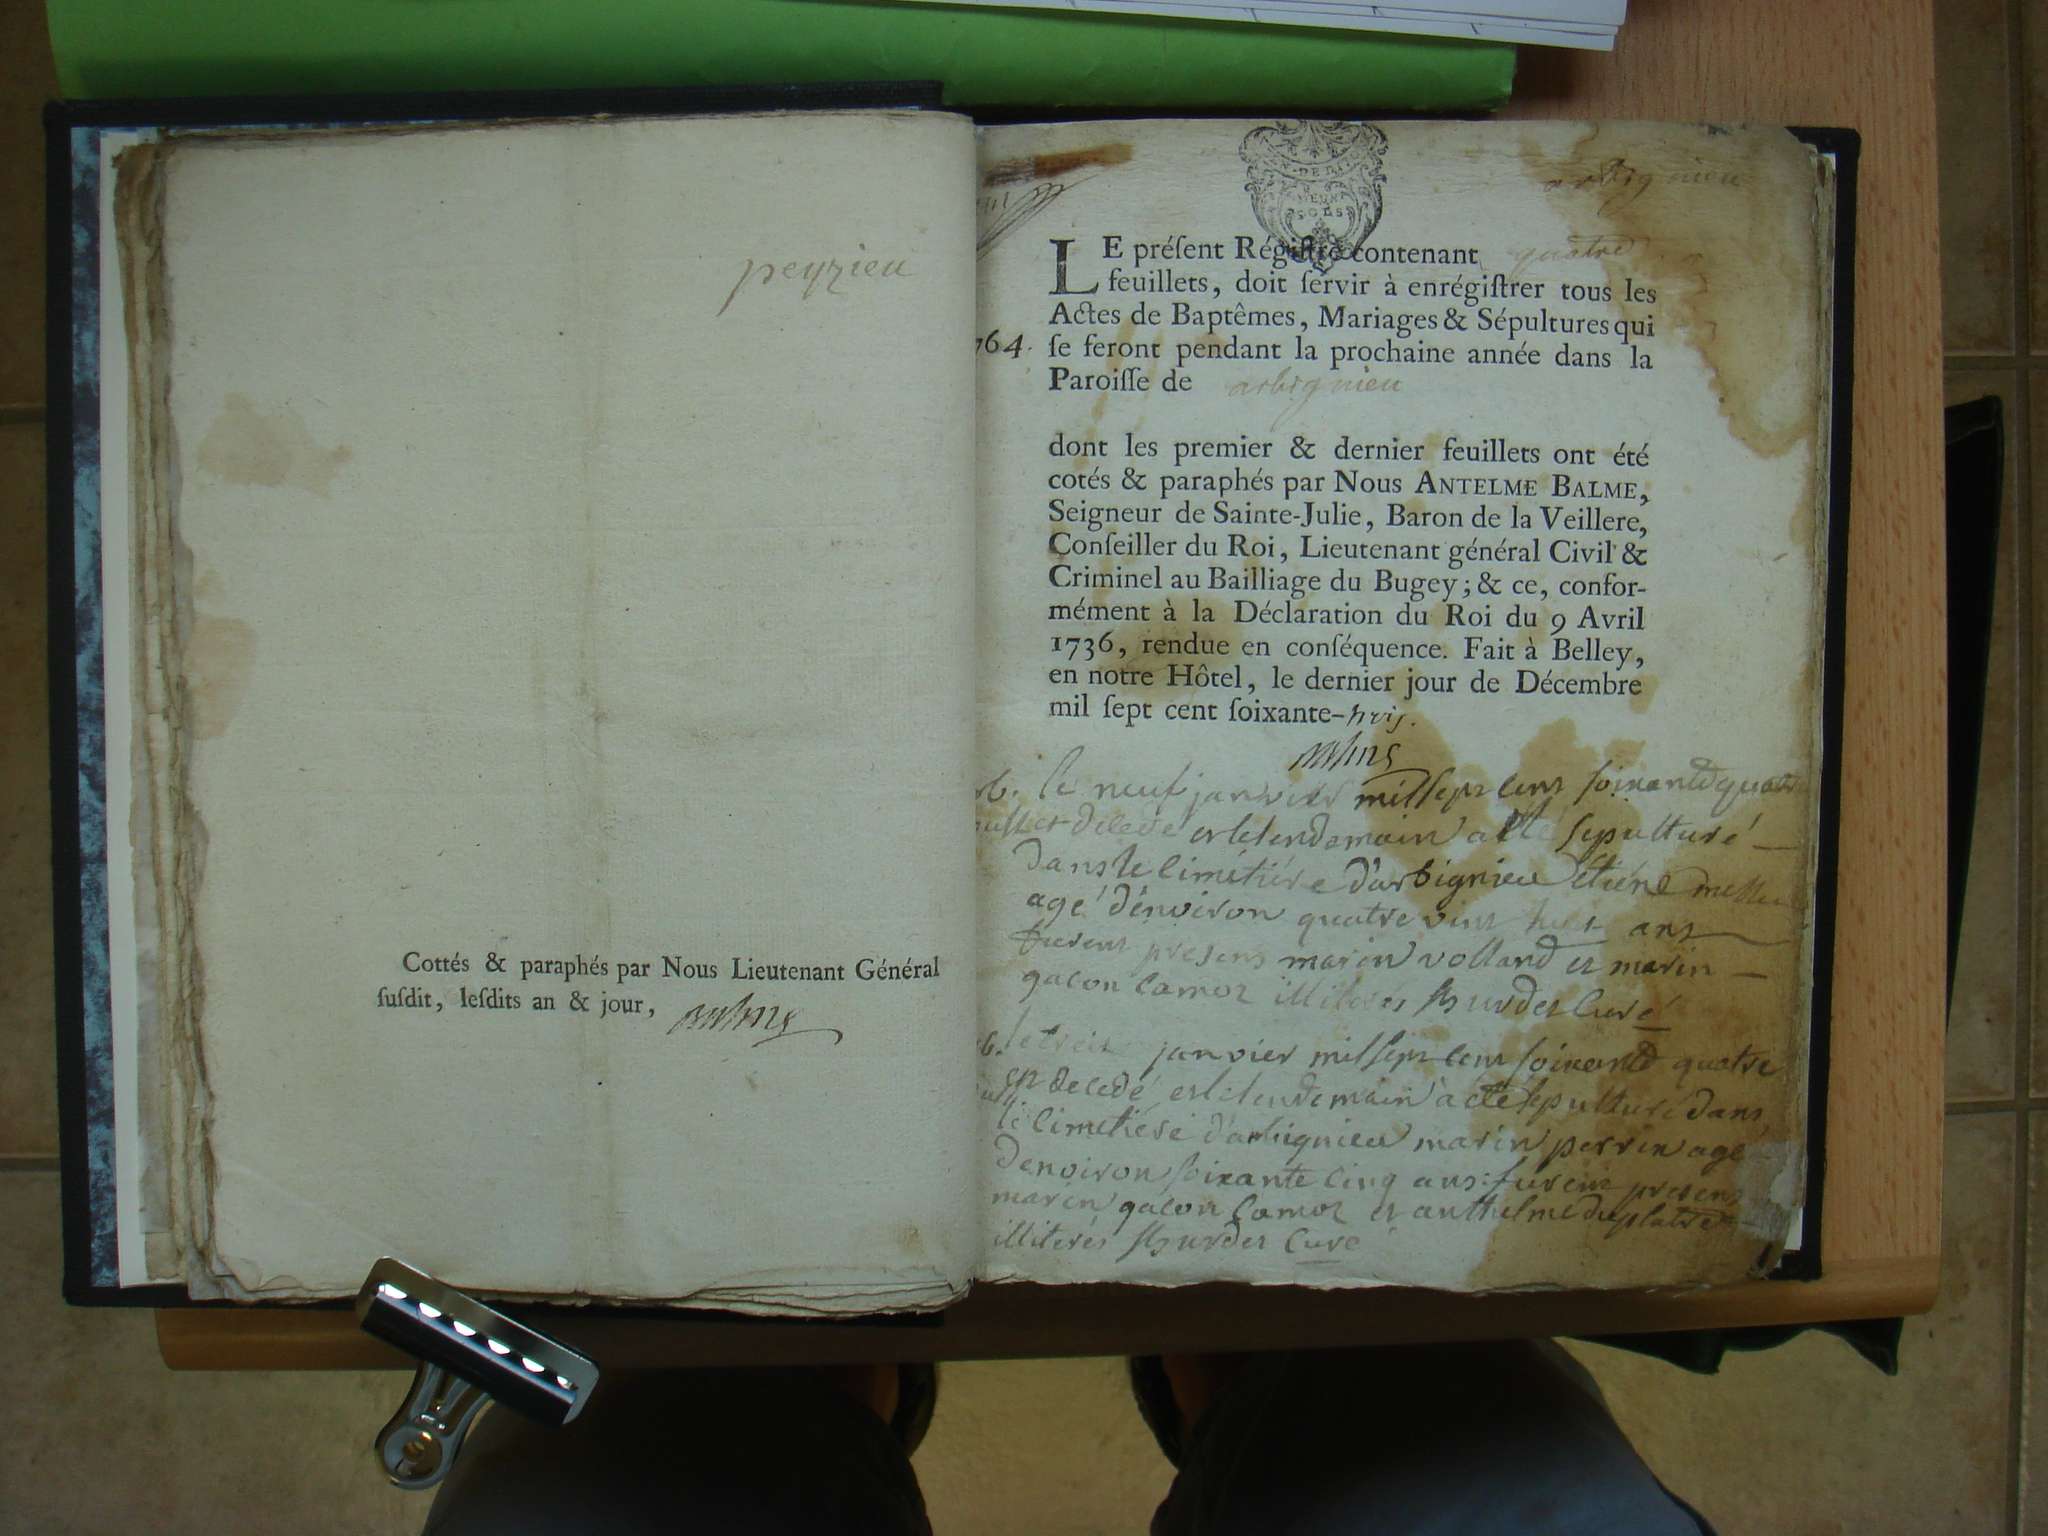 peyzieu
Cottés & paraphés par Nous Lieutenant Général
ſuſdit, leſdits an & jour,
arbignieu
LE préſent Régiſtre contenant quatre
feuillets, doit ſervir à enrégiſtrer tous les
Actes de Baptêmes, Mariages & Sépultures qui
764. ſe feront pendant la prochaine année dans la
Paroiſſe de arbignieu
dont les premier & dernier feuillets ont été
cotés & paraphés par Nous ANTELME BALME,
Seigneur de Sainte-Julie, Baron de la Veillere,
Conſeiller du Roi, Lieutenant général Civil &
Criminel au Bailliage du Bugey; & ce, confor-
mément à la Déclaration du Roi du 9 Avril
1736, rendue en conſéquence. Fait à Belley,
en notre Hôtel, le dernier jour de Décembre
mil ſept cent ſoixante-trois.
le neuf janvier mil sept cens soixante quatre
est decedé et le lendemain a eté sepulturé
dans le cimétiére d'arbignieu etiéne
agé d'environ quatre vint huit ans
furent presens marin volland et marin
gacon camoz illiterés hurdes curé
le treize janvier mil sept cens soixante quatre
est decedé et le lendemain a eté sepulturé dans
le cimetiére d'arbignieu marin perrin agé
denviron soixante cinq ans: furent presens
marin gacon camoz et anthelme duplatre
illiterés hurdes curé